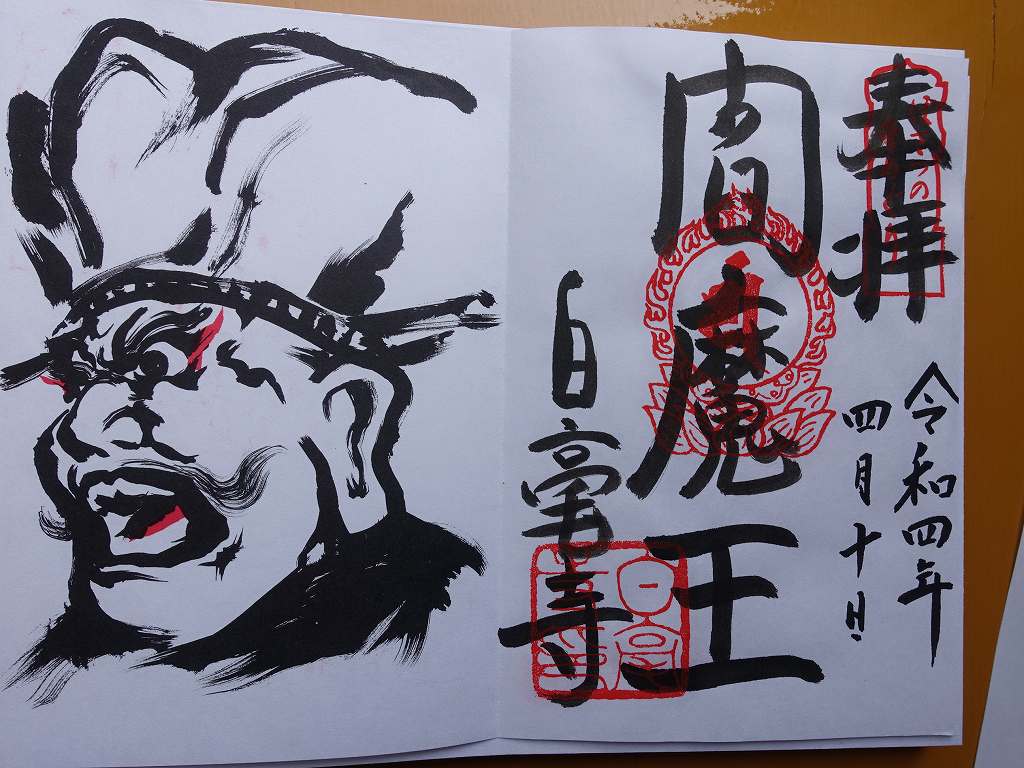 奉拝
令和四年
四月十日
閻魔王
白毫寺